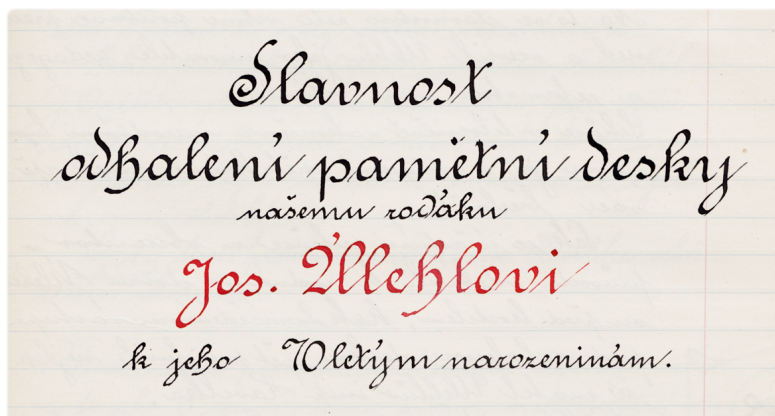 Slavnost
odhalení pamětní desky
našemu rodáku
Jos. Úlehlovi
k jeho 70letým narozeninám.